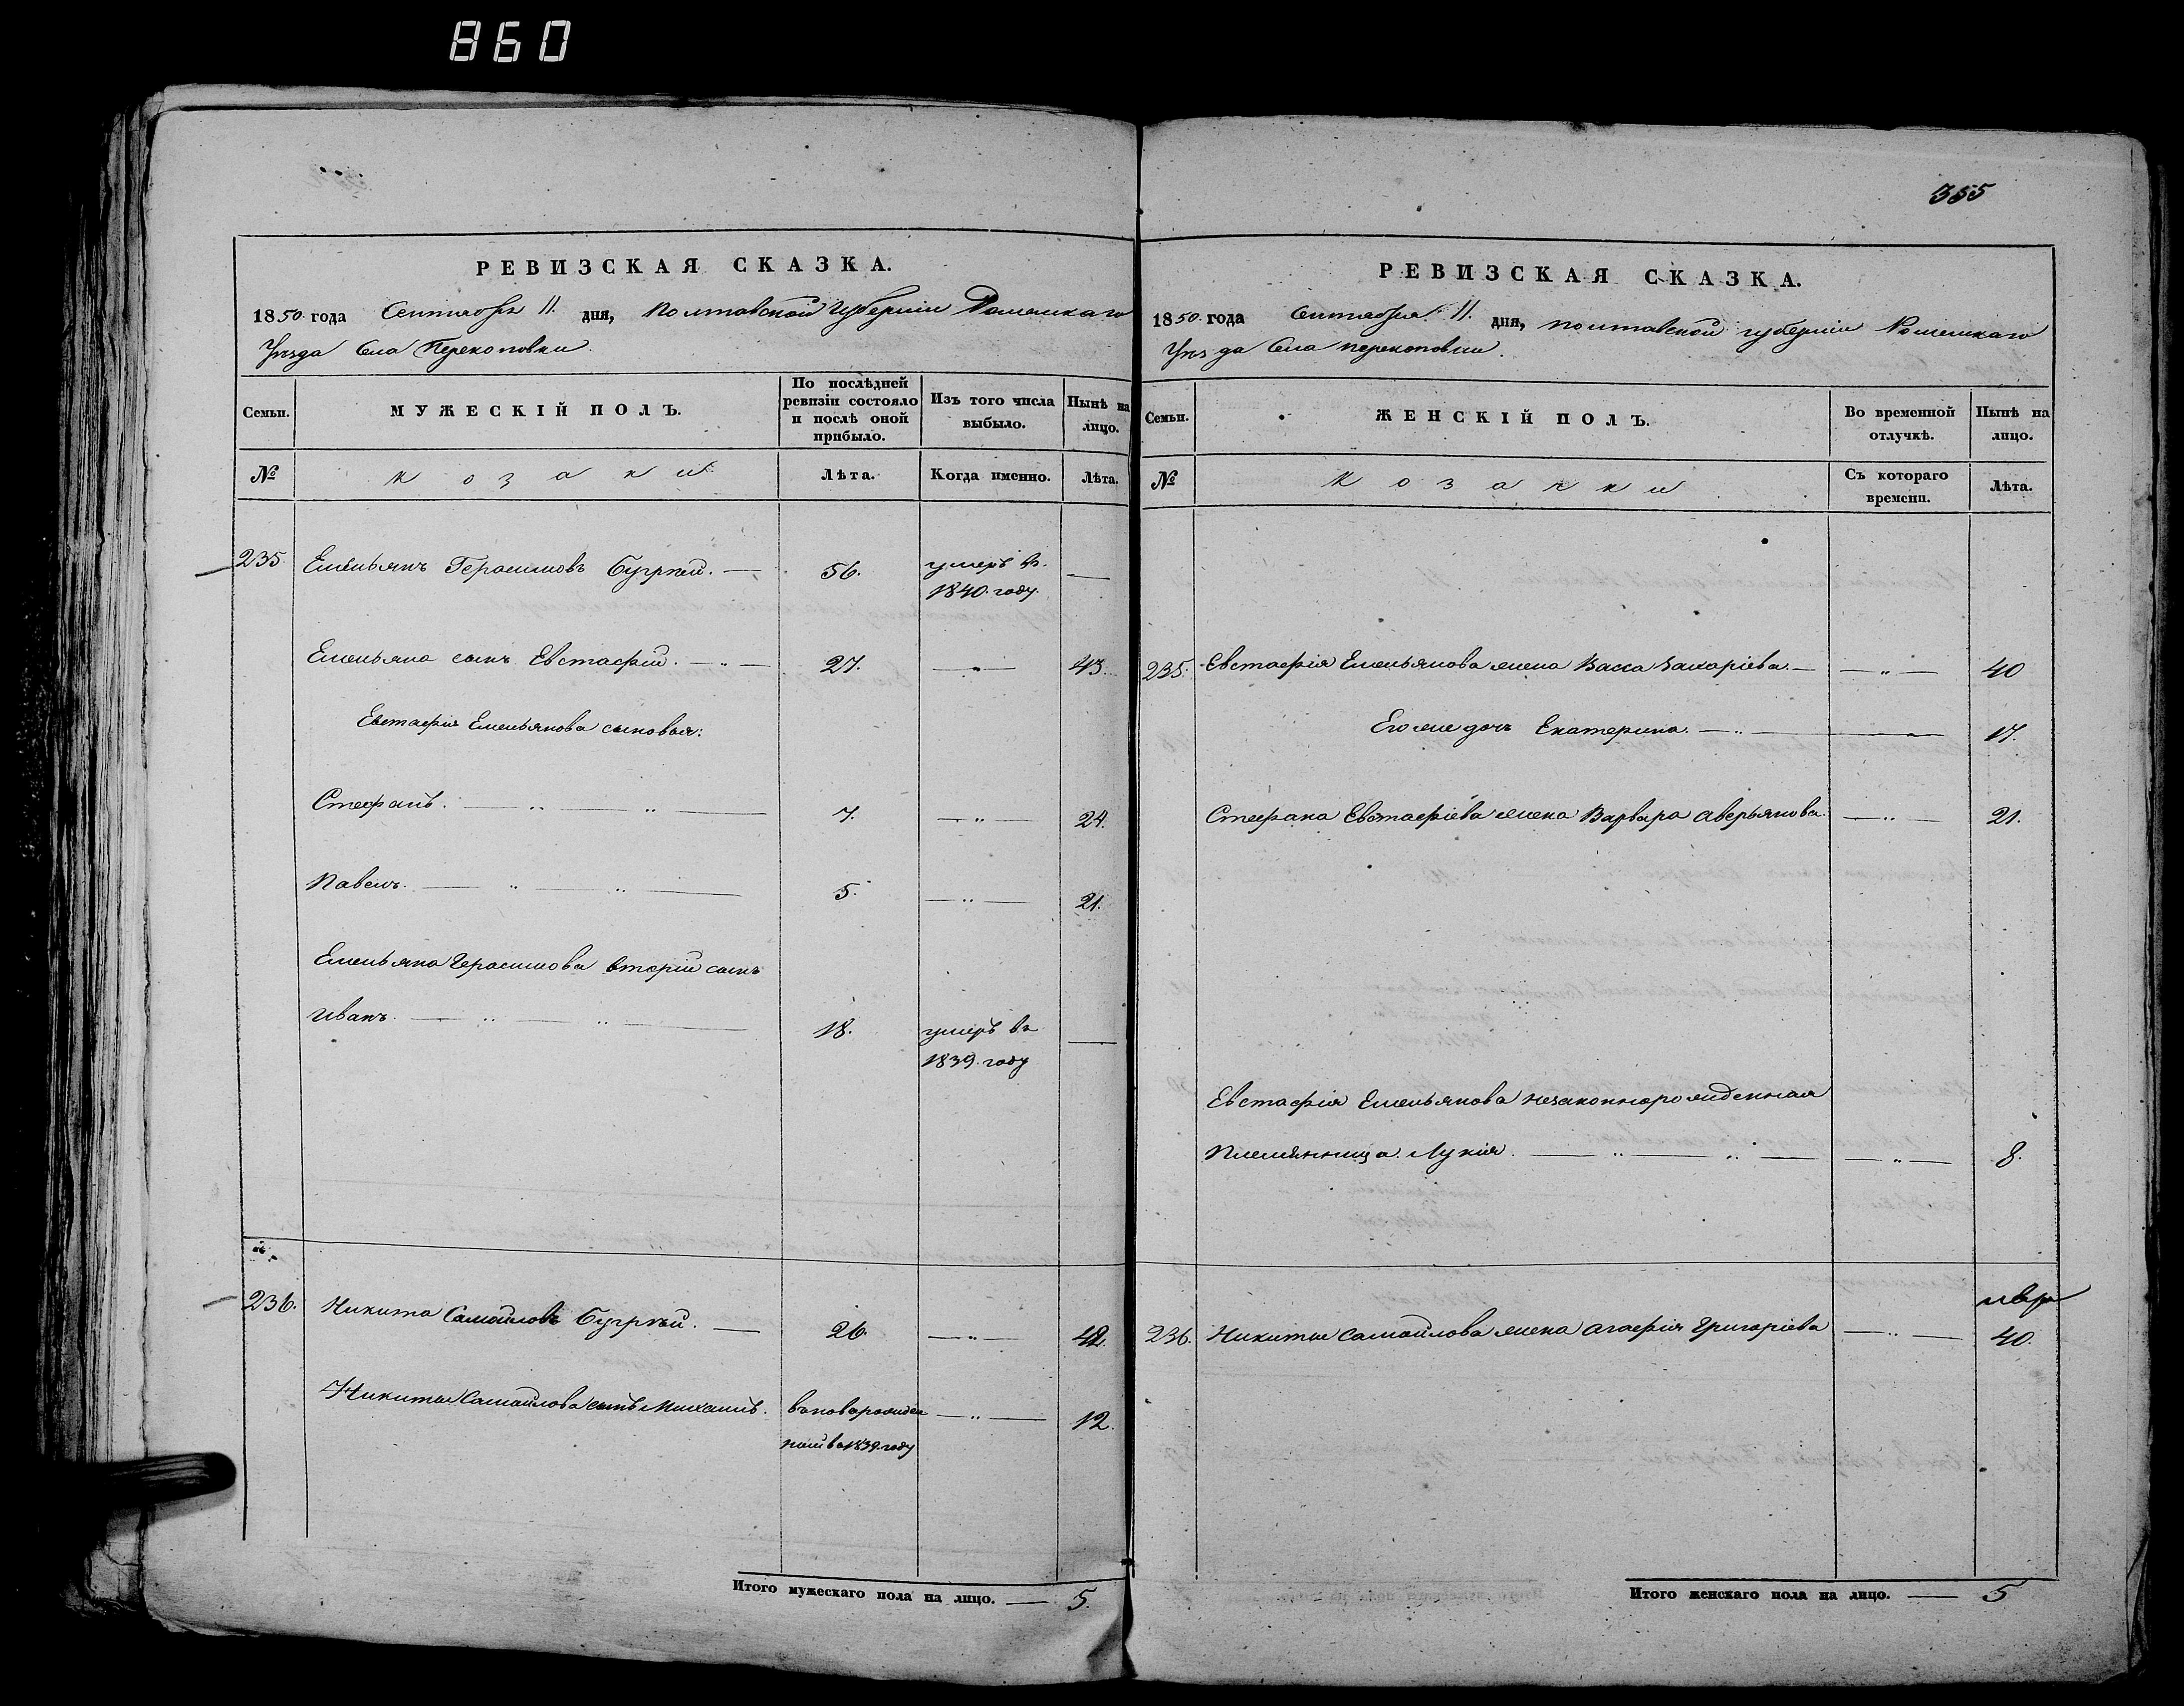 860
355
РЕВИЗСКАЯ СКАЗКА.
1850 года Сентября 11. дня, Полтавской губернии Роменскаго
Уѣзда Села Перекоповки.
Семьи. МУЖЕСКІЙ ПОЛЪ. По послѣдней ревизіи состояло и послѣ оной прибыло. Изъ того числа выбыло. Нынѣ на лицо.
№ Козаки Лѣта. Когда именно. Лѣта.
235. Емельянъ Герасимовъ 56. умеръ въ 1840. году. —
Емельяна сынъ Евстафій. 27. — 43.
Евстафія Емельянова сыновья:
Стефанъ. 7. — 24.
Павелъ. 5. — 21.
Емельяна Герасимова вторій сынъ
Иванъ. 18. умеръ въ 1839. году —
236. Никита Самойловъ 26. — 42.
Никиты Самойлова сынъ Михаилъ. въ 1839. году — 12.
Итого мужескаго пола на лицо. — 5.
РЕВИЗСКАЯ СКАЗКА.
1850 года Сентября 11. дня, полтавской губерніи Роменскаго
Уѣзда Села перекоповки.
Семьи. ЖЕНСКІЙ ПОЛЪ. Во временной отлучкѣ. Нынѣ на лицо.
№ Козачки Съ котораго времени. Лѣта.
235. Евстафія Емельянова жена Васса Захаріева. — 40
Его же дочь Екатерина. — 17.
Стефана Евстафіева жена Варвара Аверьянова. — 21.
Евстафія Емельянова незаконнорожденная
Племянница Лукія. — 8.
236. Никиты Самойлова жена Агафія Григоріева — 40.
Итого женскаго пола на лицо. — 5